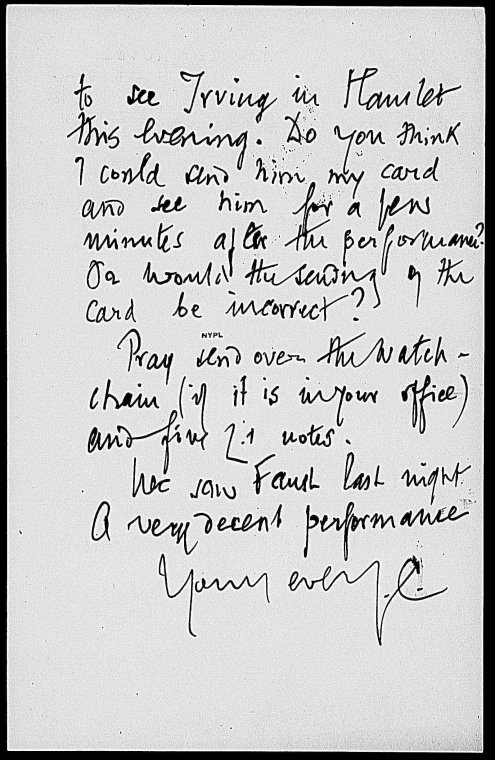 to see Irving in Hamlet
this evening. Do you think
I could send him my card
and see him for a few
minutes after the performance?
Or would the sending of the
card be incorrect?
NYPL
Pray send over the Watch-
chain (if it is in your office)
and five £1 notes.
We saw Faust last night
A very decent performance
Yours ever J.C.